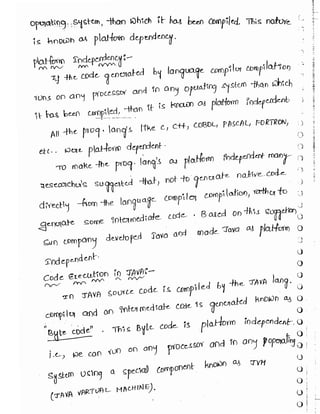 operating system, than which it has been compiled. This nature
is known as platform dependency.
platform Independency:-
If the code generated by language compilor compilation
runs on any processor and in any operating system than which
it has been compiled, than it is known as platform independent.
All the prog. lang's like C, C++, COBOL, PASCAL, FORTRON,
etc.. were platform dependent.
To make the prog. lang's as platform independent many
researcher's suggested that, not to generate native code
directly from the language compiler compilation, rather to
generate some Intermediate code. Based on this suggestion,
Sun company developed Java and made Java as platform
independent.
Code Execution in JAVA:-
In JAVA source code is compiled by the JAVA lang.
compilor and an intermediate code is generated known as
"Byte code". This Byte code is platform independent.
i.e., we can run on any processor and in any operating
system using a special component known as JVM
(JAVA VARTUAL MACHINE).